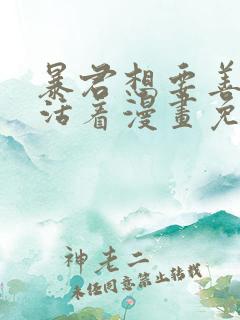 暴君想要善
活着漫畫免
神老二
未经同意禁止转载